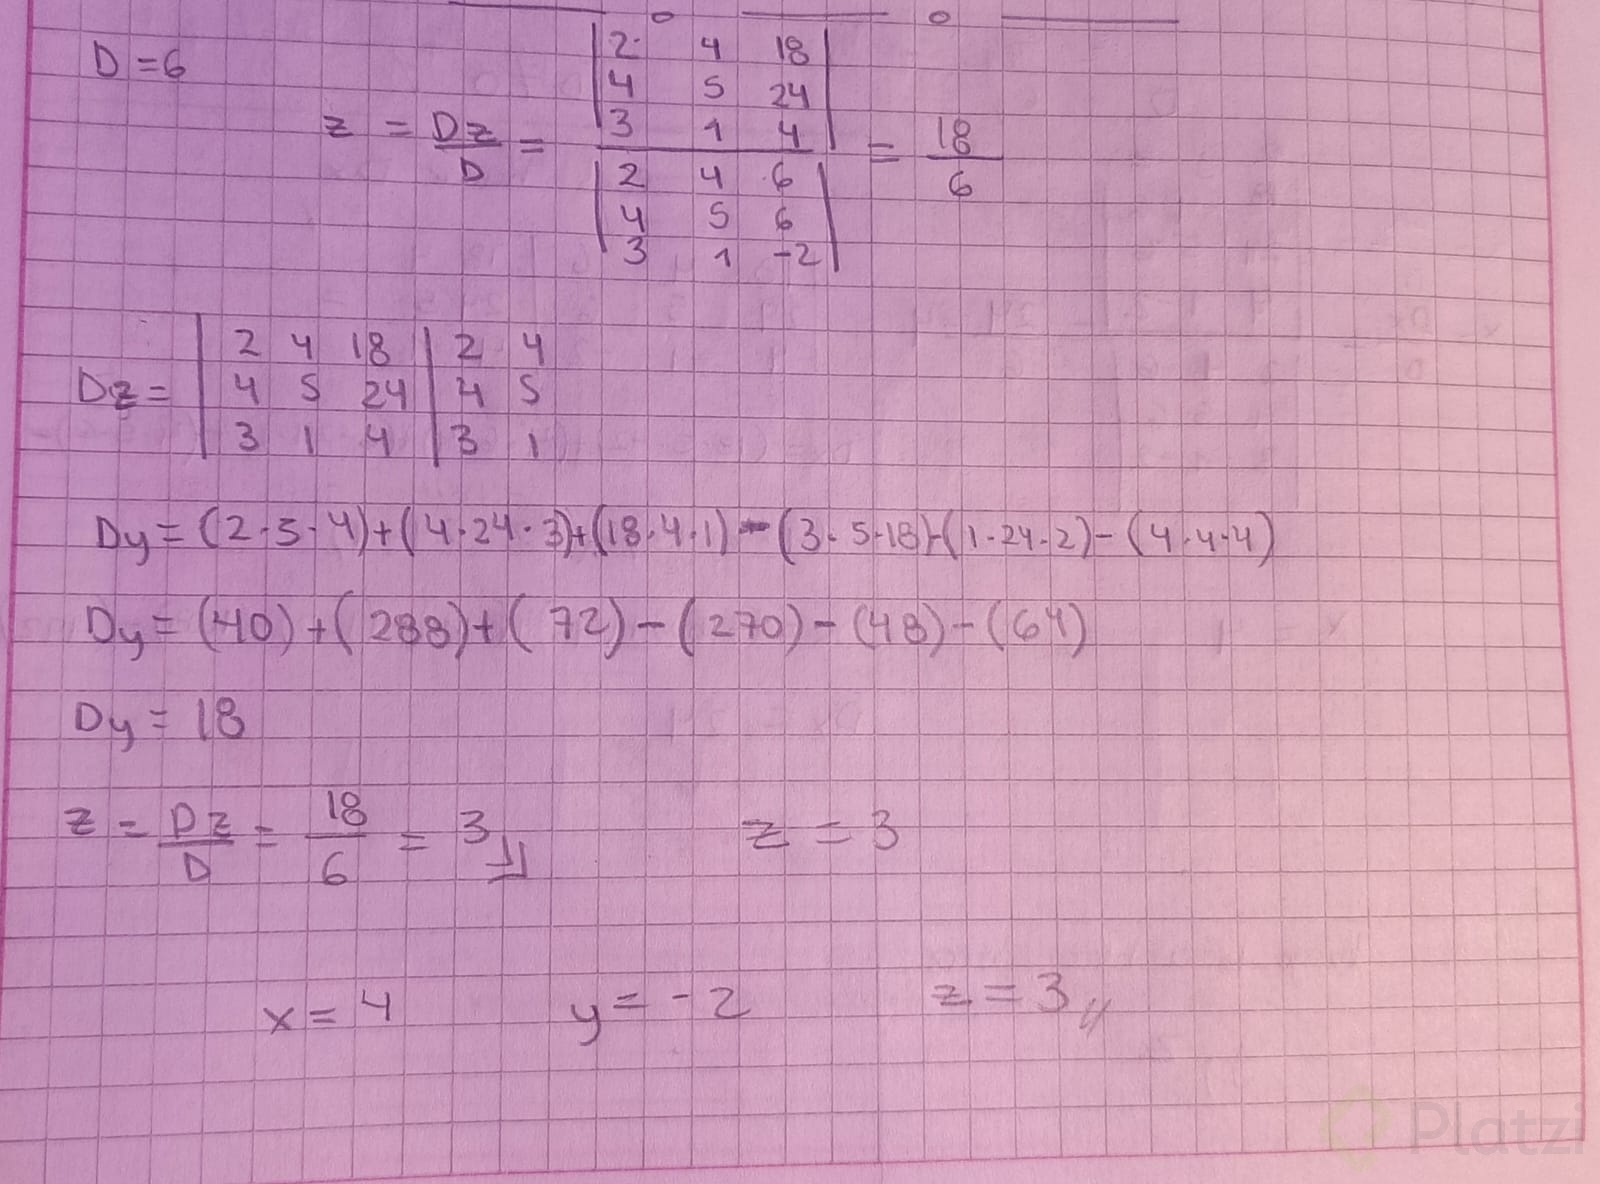 D = 6
z = Dz/D = |2 4 18 4 5 24 3 1 4| / |2 4 6 4 5 6 3 1 -2| = 18/6
Dz = | 2 4 18 | 2 4
4 5 24 | 4 5
3 1 4 | 3 1
Dy = (2·5·4)+(4·24·3)+(18·4·1)-(3·5·18)-(1·24·2)-(4·4·4)
Dy = (40)+(288)+(72)-(270)-(48)-(64)
Dy = 18
z = Dz/D = 18/6 = 3 z = 3
x = 4 y = -2 z = 3
Platzi